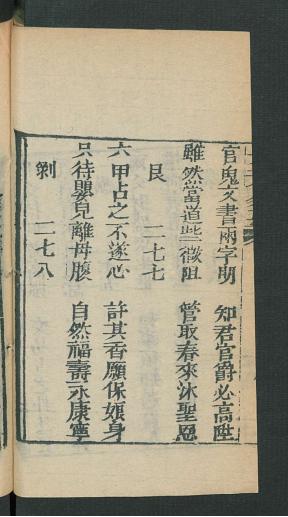 官鬼文書兩字明　知君官爵必高陞
雖然當道些微阻　管取春來沐聖恩
艮　二七七
六甲占之不遂心　許其香願保娘身
只待嬰兒離母腹　自然福壽永康寧
剝　二七八